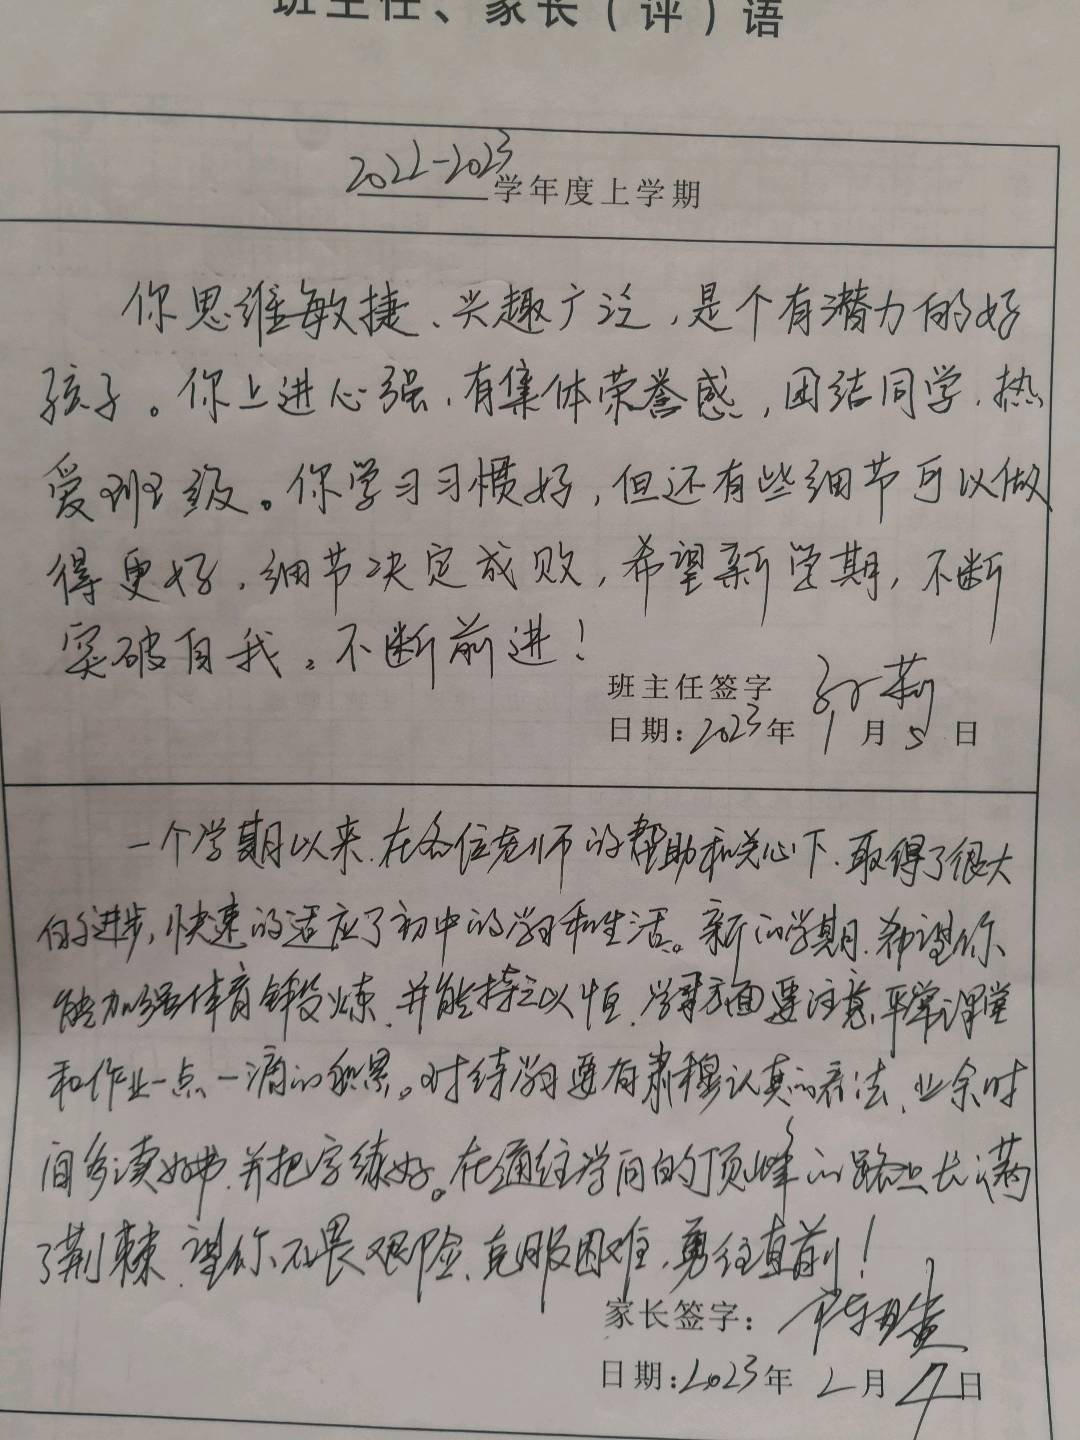 班主任、家长（评）语
2022-2023学年度上学期
你思维敏捷、兴趣广泛,是个有潜力的好
孩子。你上进心强,有集体荣誉感,团结同学,热
爱班级。你学习习惯好,但还有些细节可以做
得更好,细节决定成败,希望新学期,不断
突破自我。不断前进!
班主任签字 孙莉
日期:2023年1月5日
一个学期以来,在各位老师的帮助和关心下,取得了很大
的进步,快速的适应了初中的学习和生活。新的学期,希望你
能加强体育锻炼,并能持之以恒,学习方面要注意,平常课堂
和作业一点一滴的积累。对待学习要有肃穆认真的看法,业余时
间多读好书,并把字练好。在通往学问的顶峰的路上长满
了荆棘,望你不畏艰险、克服困难,勇往直前!
家长签字:
日期:2023年2月7日